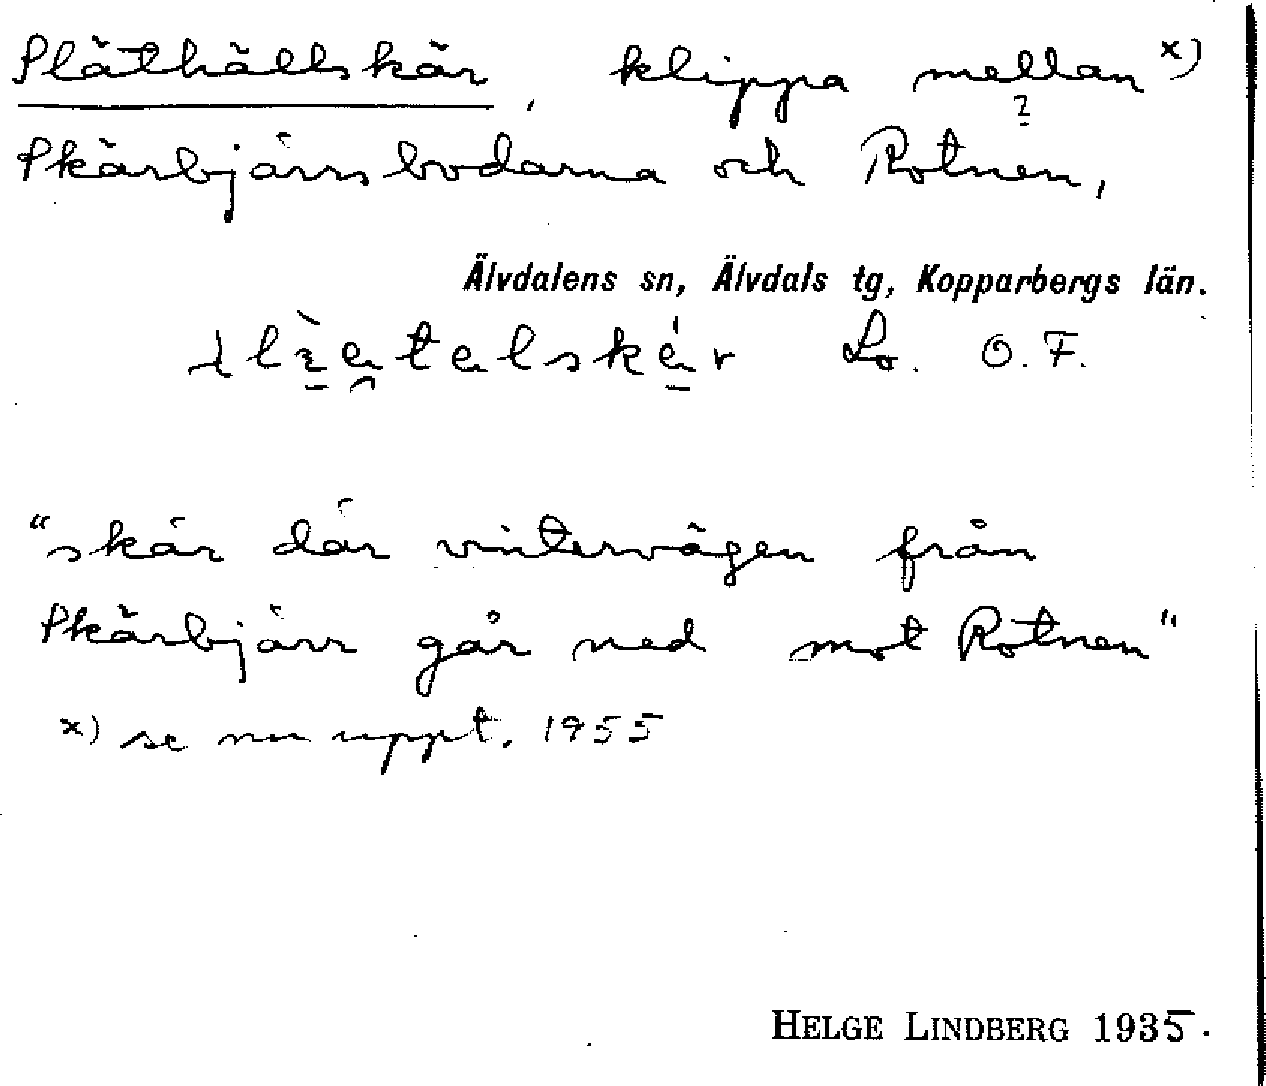 Släthällskär, klippa mellan x)
?
Skärbjärrsbodarna och Rotnen,
Älvdalens sn, Älvdals tg, Kopparbergs län.
Lo. O. F.
"skär där vintervägen från
Skärbjärr går ned mot Rotnen"
x) se nu uppt. 1955
HELGE LINDBERG 1935.